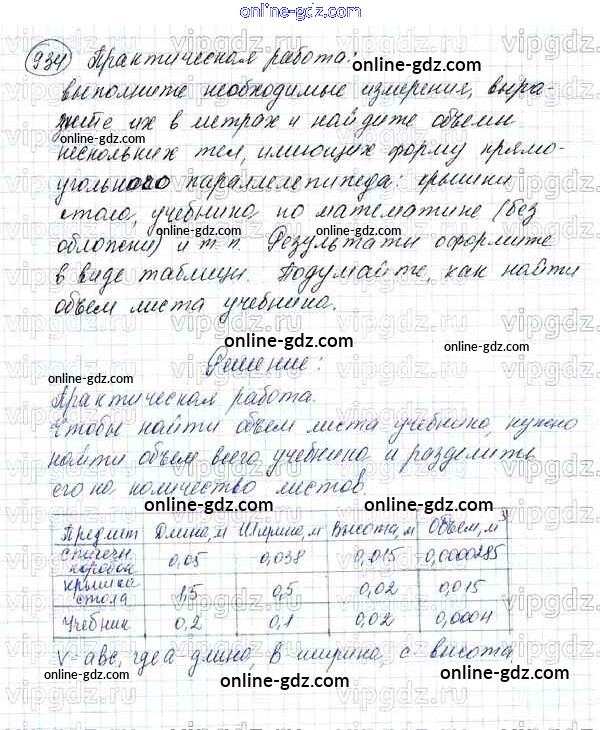 online-gdz.com
934 Практическая работа:
online-gdz.com
выполните необходимые измерения, выра-
зите их в метрах и найдите объемы
нескольких тел, имеющих форму прямо-
угольного параллелепипеда: крышки
стола, учебника по математике (без
обложки) и т.п. Результаты оформите
в виде таблицы. Подумайте, как найти
объем листа учебника.
online-gdz.com
Решение:
online-gdz.com
Практическая работа.
online-gdz.com
Чтобы найти объем листа учебника, нужно
найти объем всего учебника и разделить
его на количество листов.
online-gdz.com
online-gdz.com
Предмет Длина, м Ширина, м Высота, м Объем, м³
спичечн. коробок 0,05 0,038 0,015 0,0000285
крышка стола 1,5 0,5 0,02 0,015
Учебник 0,2 0,1 0,02 0,0004
V=abc, где a длина, в-ширина, с-высота.
online-gdz.com
online-gdz.com
online-gdz.com